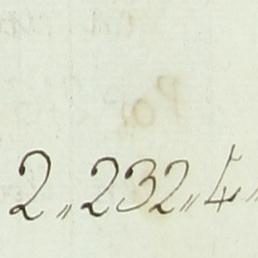 2„232„4„